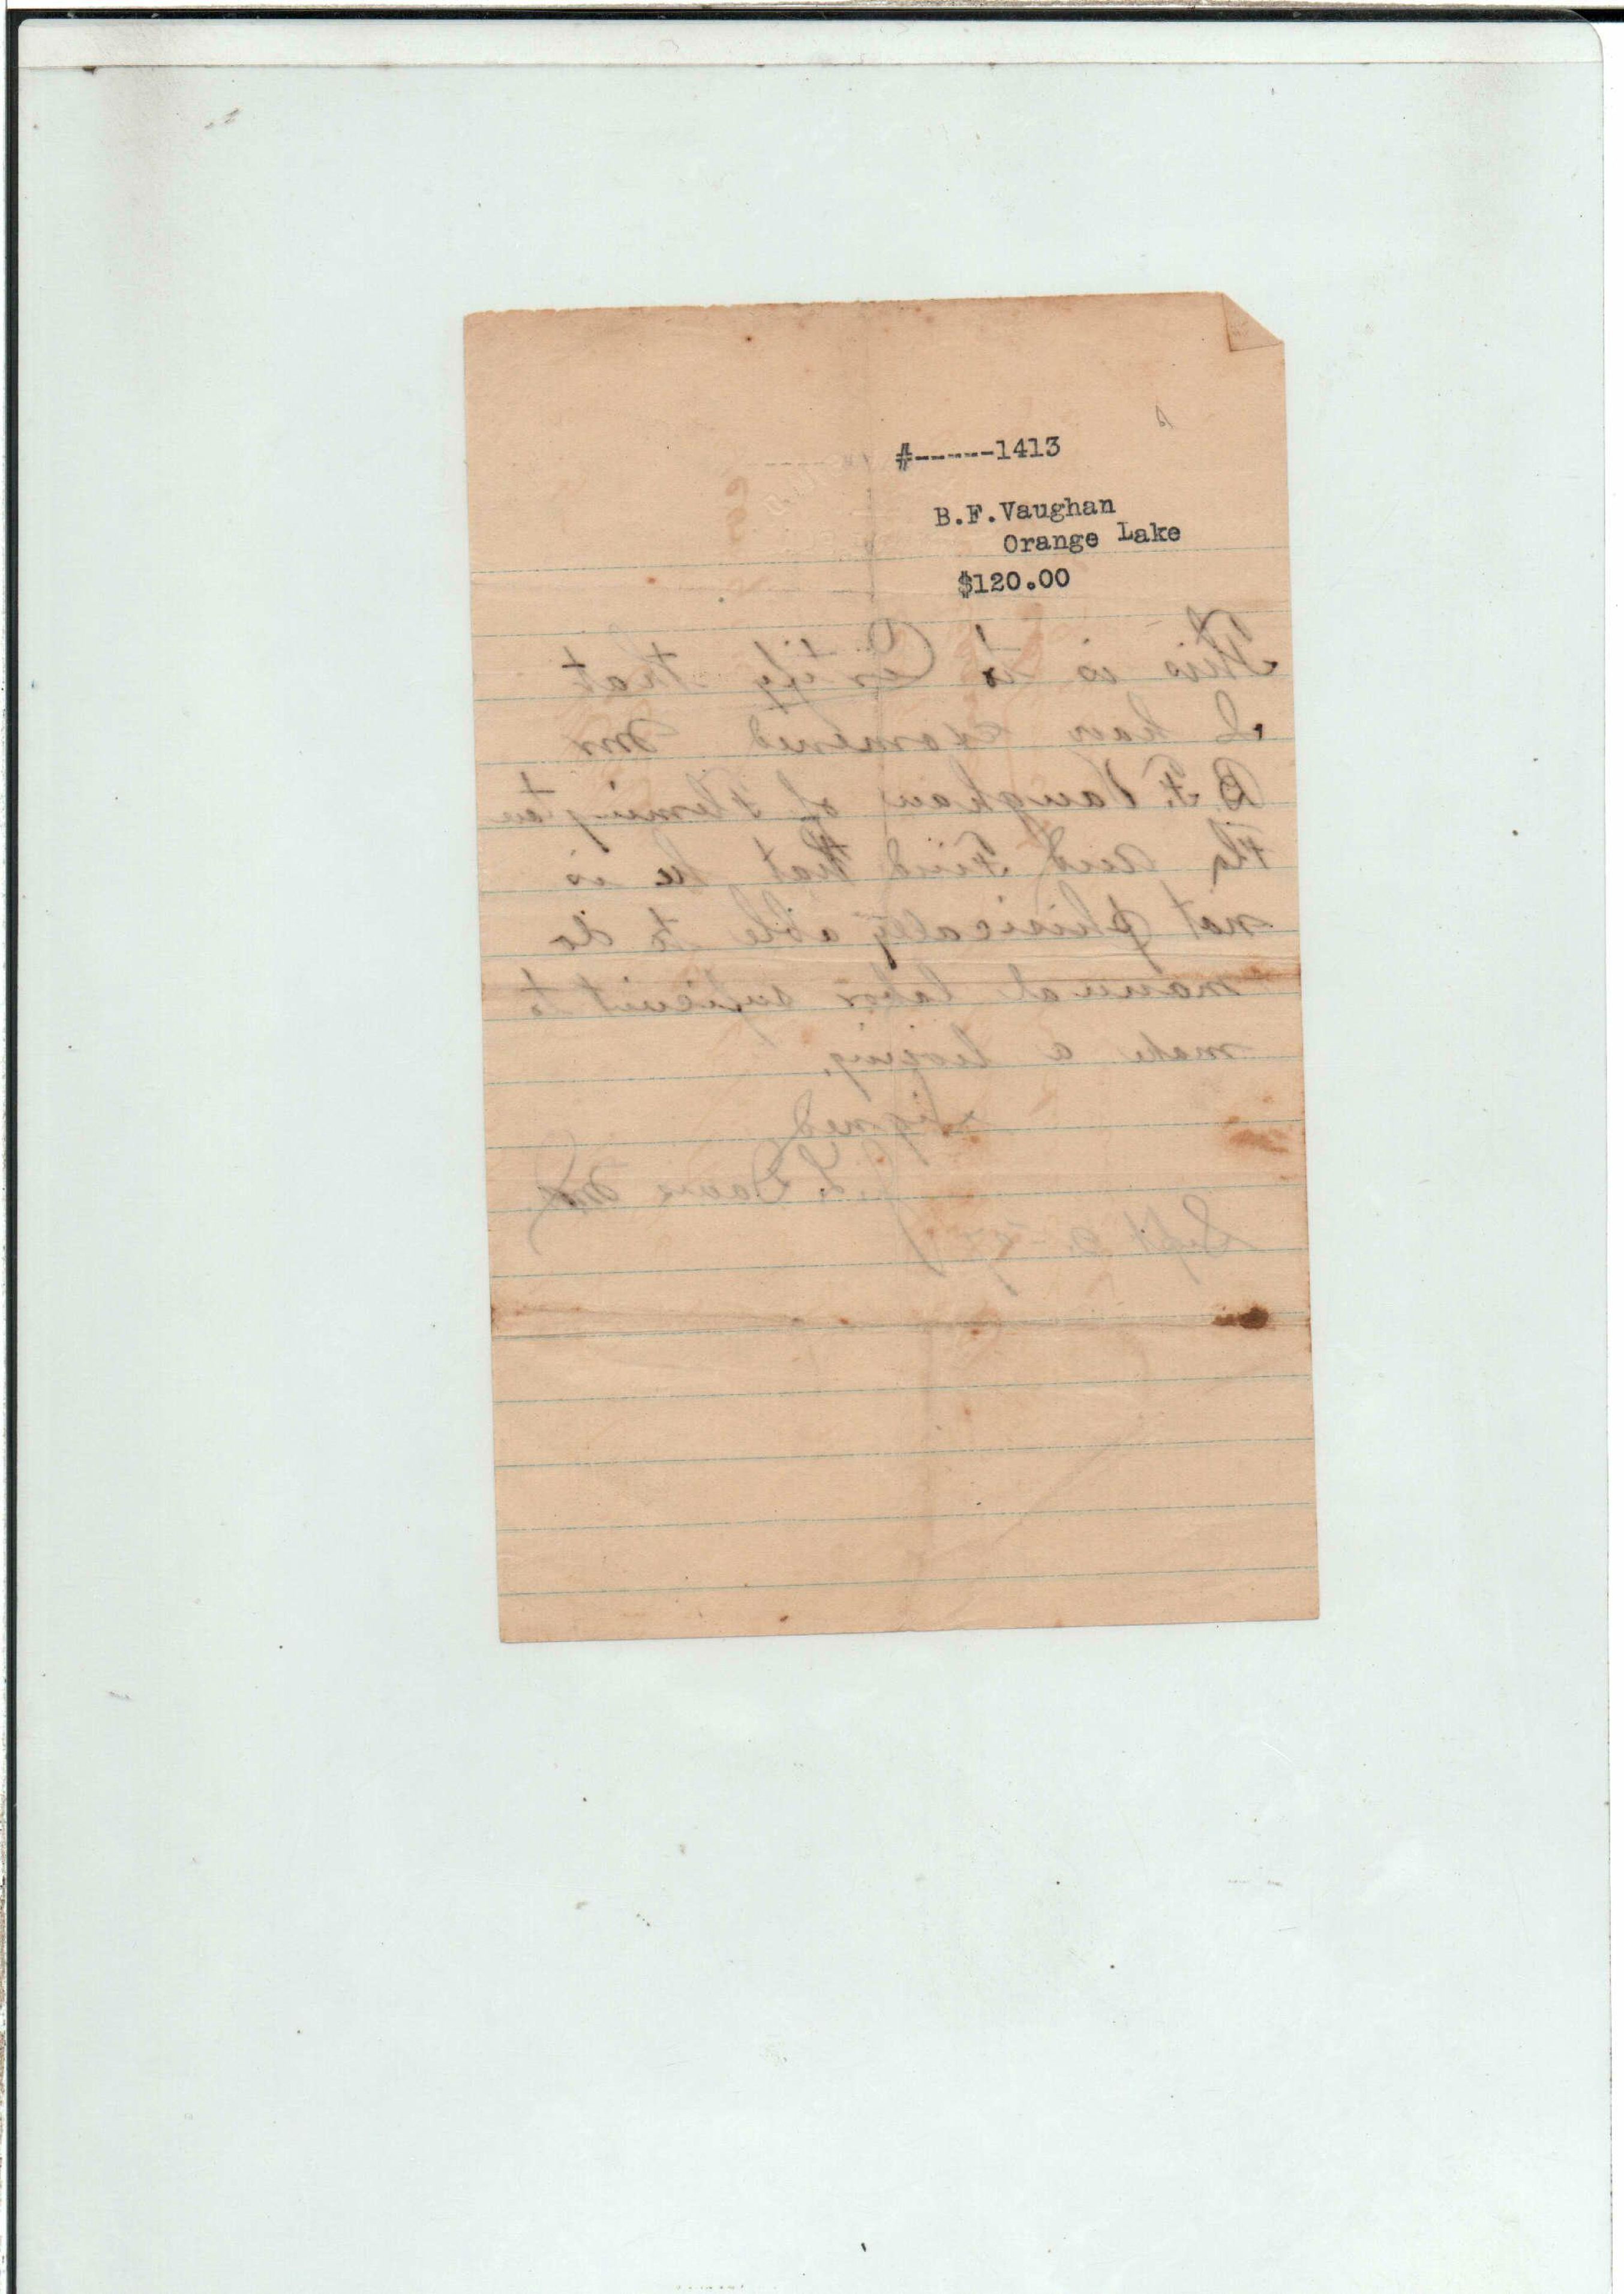 #-----1413
B.F.Vaughan
Orange Lake
$120.00
This is to Certify that
I have examined Mr
B. F. Vaughan of Flemington
Fla and Find that he is
not phisically able to do
manual labor suficient to
make a living.
Signed
J. L. Davis MD
Sept 9